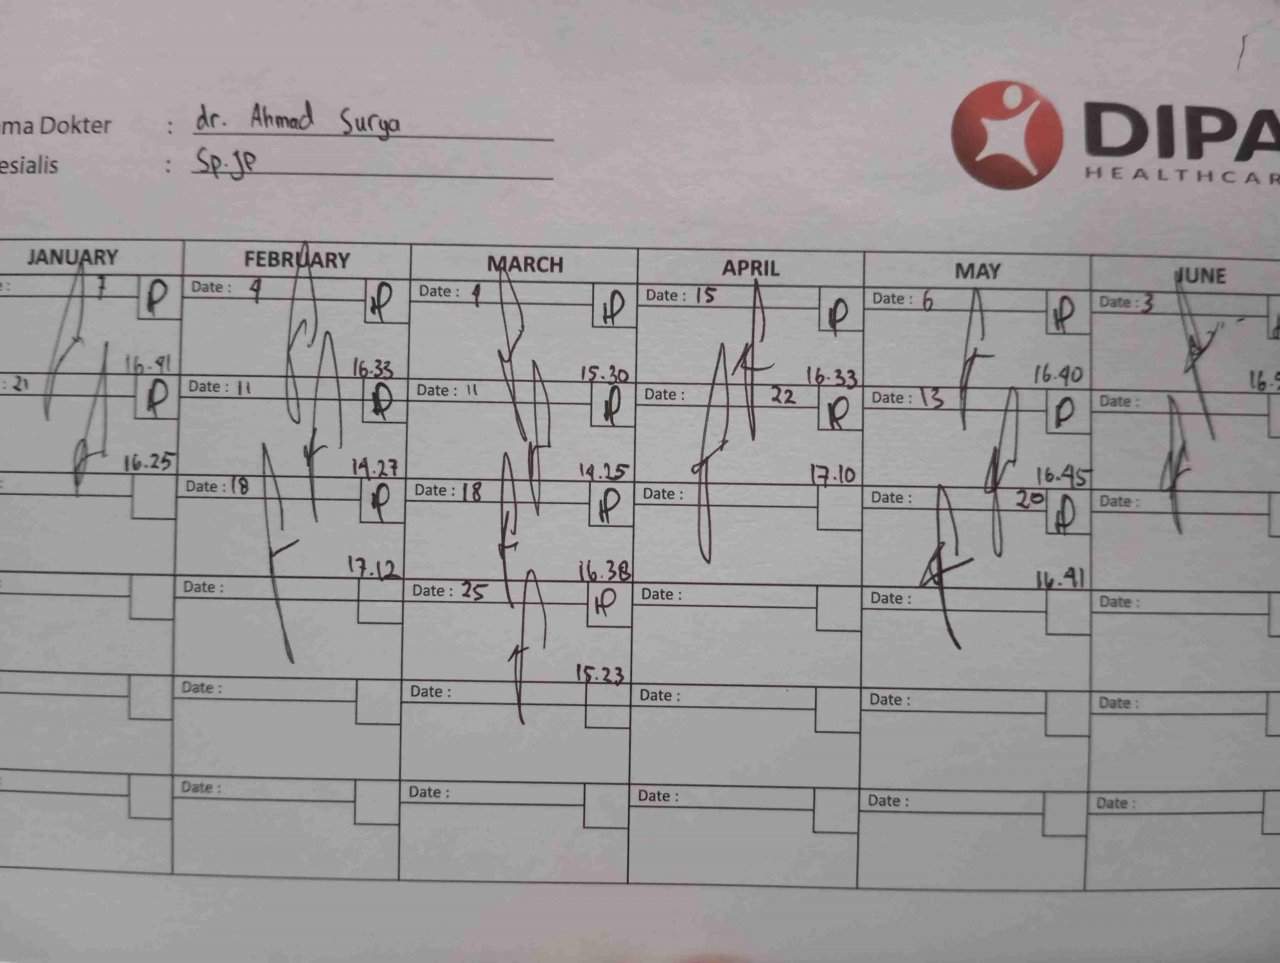 ma Dokter : dr. Ahmad Surya
esialis : Sp.JP
DIPA
HEALTHCAR
JANUARY FEBRUARY MARCH APRIL MAY JUNE
: 7 P Date : 4 P Date : 4 P Date : 15 P Date : 6 P Date : 3
16.41 16.33 15.30 16.33 16.40 16.5
: 21 P Date : 11 P Date : 11 P Date : 22 P Date : 13 P Date :
16.25 14.27 14.25 17.10 16.45
: Date : 18 P Date : 18 P Date : Date : 20 P Date :
17.12 16.38 16.41
: Date : Date : 25 P Date : Date : Date :
15.23
: Date : Date : Date : Date : Date :
: Date : Date : Date : Date : Date :